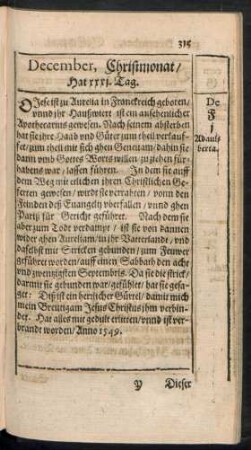 315
December, Christmonat/
Hat xxxi. Tag.
DIese ist zu Aurelia in Franckreich geboren/
vnnd jhr Haußwiert ist ein ansehenlicher
Apothecarius gewesen. Nach seinem absterben
hat sie jhre Haab vnd Güter zum theil verkauf-
fet/zum theil mit sich ghen Geneua/dahin sie
darin vmb Gottes Worts willen zuziehen für-
habens war/lassen führen. In dem sie auff
dem Weg mit etlichen jhren Christlichen Ge-
ferten gewesen/wirdt sie verrahten/vonn den
Feinden deß Euangely vberfallen/vnnd ghen
Pariß für Gericht geführet. Nach dem sie
aber zum Todt verdampt/ist sie von dannen
wider ghen Aureliam/in jhr Vatterlandt/vnd
daselbst mit Stricken gebunden/zum Feuwer
geführet worden/auff einen Sabbath den acht
vnd zwentzigsten Septembris. Da sie die strick/
darmit sie gebunden war/gefühlet/hat sie gesa-
get: Diß ist ein herrlicher Gürtel/damit mich
mein Breutigam Jesus Christus jhm verbin-
det. Hat alles mit gedult erlitten/vnnd ist ver-
brandt worden/Anno 1549.
De
F
j
Adauls
berta.
Y Dieser